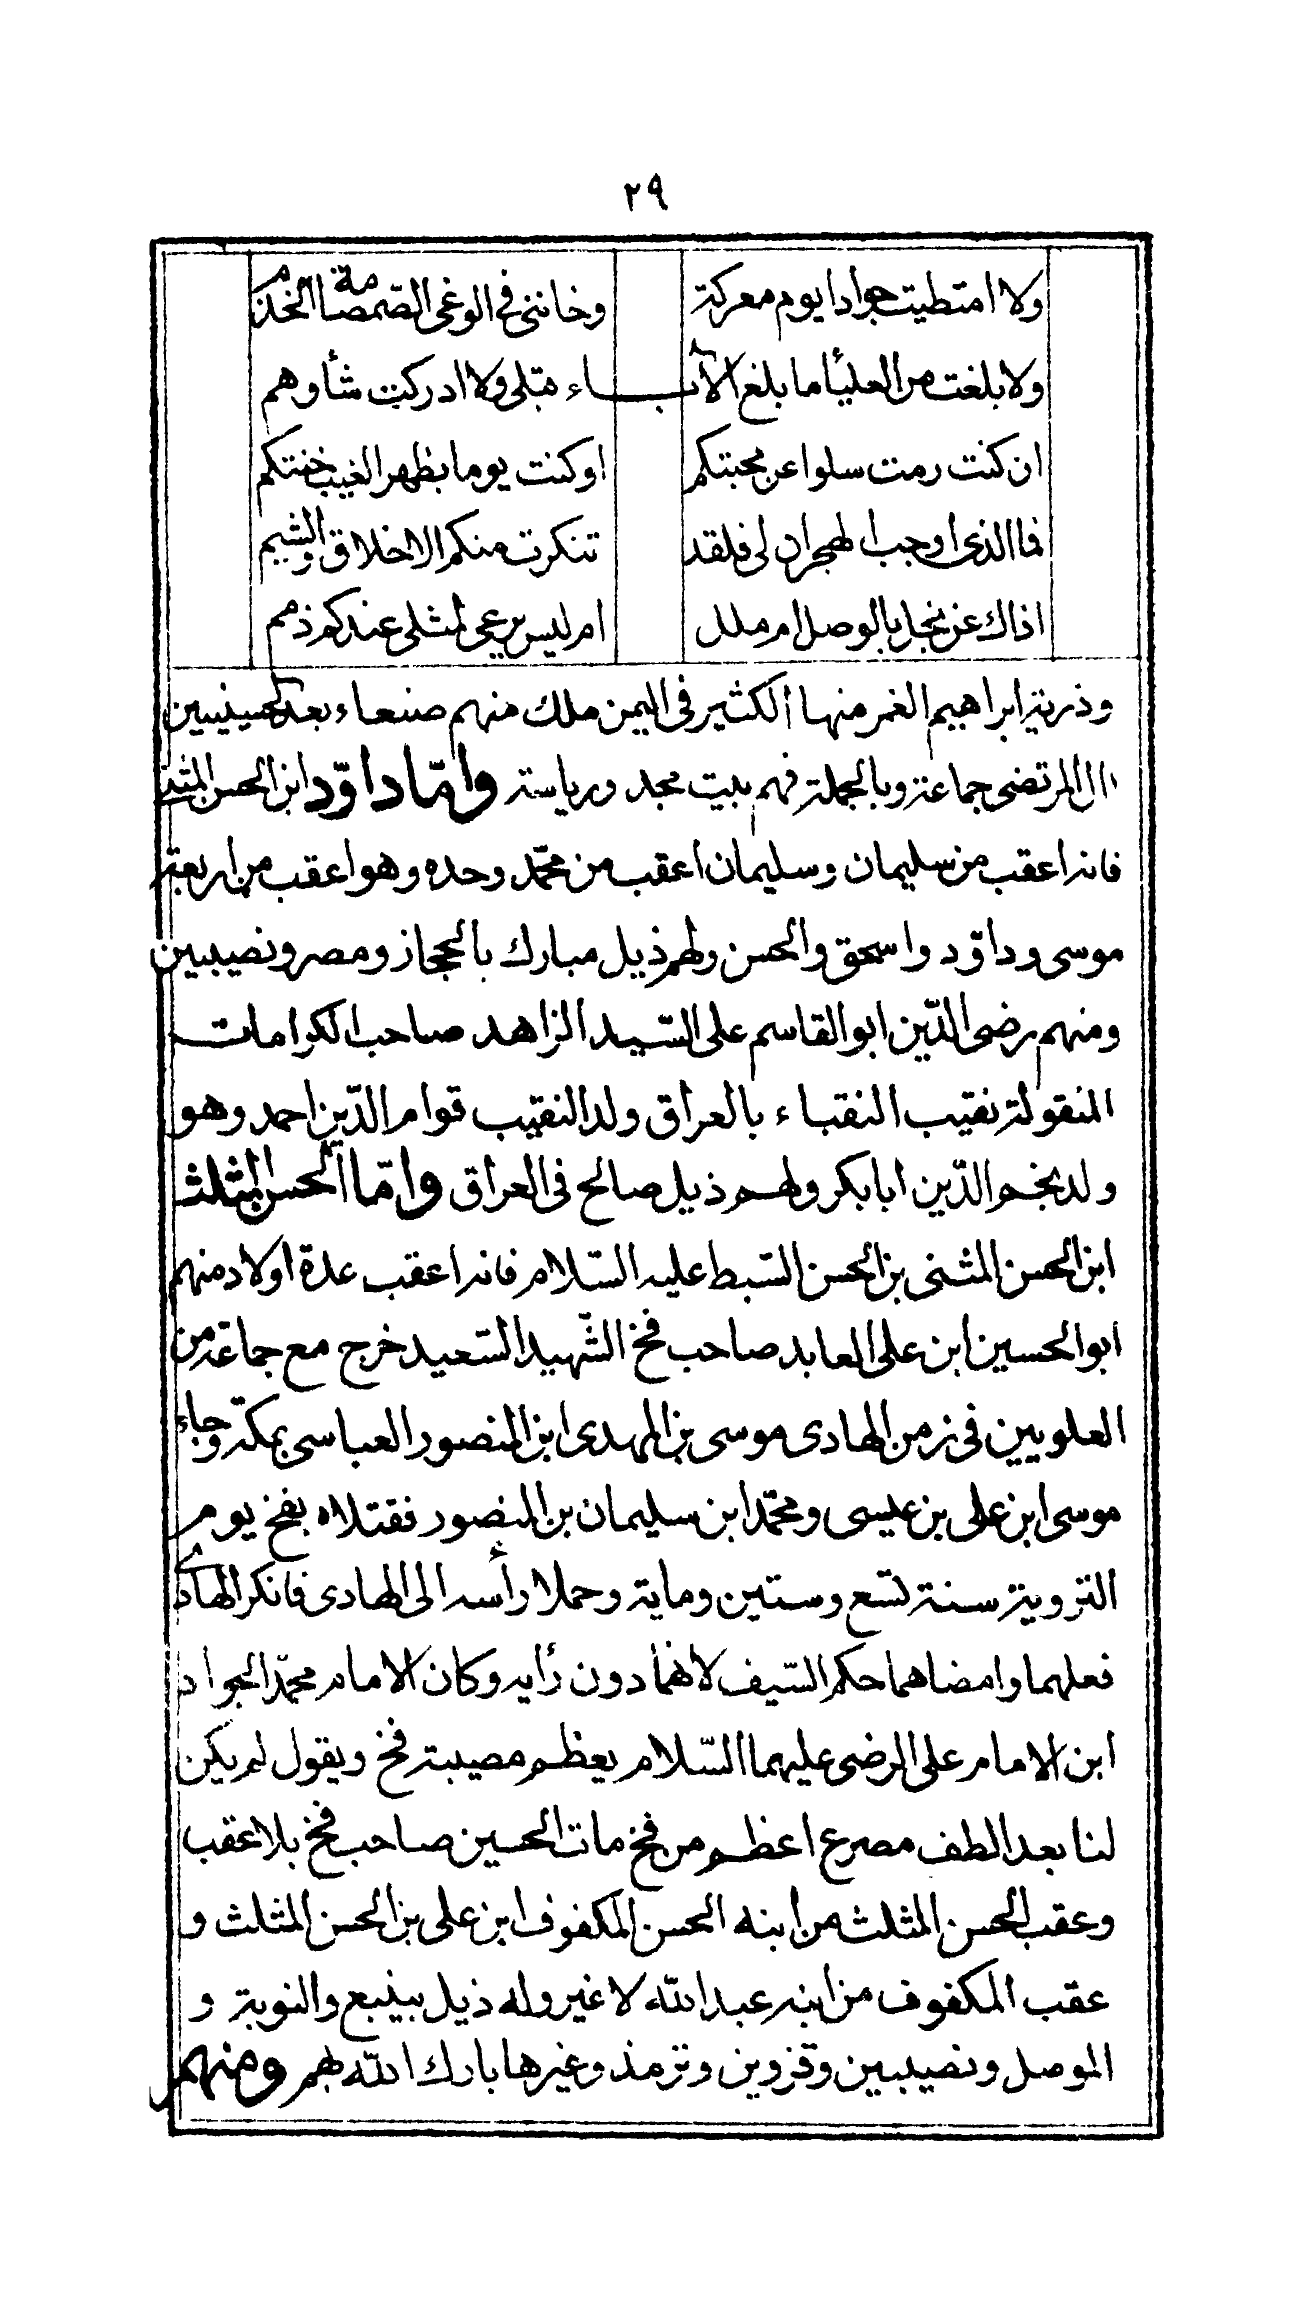 ٢٩
ولا امتطيت جوادا يوم معركة وخاننى فى الوغى الصمصامة الخذم
ولا بلغت من العلياء ما بلغ الآبـاء قبلى ولا ادركت شأوهم
ان كنت رمت سلوا عن محبتكم اوكنت يوما بظهر الغيب خنتكم
فما الذى اوجب الهجران لى فلقد تنكرت منكم الاخلاق والشيم
اذاك عن نجل بالوصل ام ملل ام ليس يرعى لمثلى عندكم ذمم
وذرية ابراهيم الغمر منها الكثير فى اليمن ملك منهم صنعاء بعد الحسينيين
ال المرتضى جماعة وبالجملة فهم بيت مجد ورياسة وامّا داوّد ابن الحسن المثنى
فانه اعقب من سليمان وسليمان اعقب من محمّد وحده وهو اعقب من اربعة
موسى وداوّد واسحق والحسن ولهم ذيل مبارك بالحجاز ومصر ونصيبين
ومنهم رضى الدّين ابو القاسم على السّيد الزاهد صاحب الكرامات
المنقولة نقيب النقباء بالعراق ولد النقيب قوام الدّين احمد وهو
ولد نجم الدّين ابا بكر ولهم ذيل صالح فى العراق وامّا الحسن المثلث
ابن الحسن المثنى بن الحسن السّبط عليه السّلام فانه اعقب عدة اولاد منهم
ابو الحسين ابن على العابد صاحب فخ الشّهيد السّعيد خرج مع جماعة من
العلويين فى زمن الهادى موسى بن المهدى ابن المنصور العباسى بمكة وجاء
موسى ابن على بن عيسى ومحمّد ابن سليمان بن المنصور فقتلاه بفخ يوم
التروية سنة تسع وستين وماية وحملا رأسه الى الهادى فانكر الهادى
فعلهما وامضاهما حكم السّيف لانهما دون رأيه وكان الامام محمّد الجواد
ابن الامام على الرضى عليهما السّلام يعظم مصيبة فخ ويقول لم يكن
لنا بعد الطف مصرع اعظم من فخ مات الحسين صاحب فخ بلا عقب
وعقب الحسن المثلث من ابنه الحسن المكفوف ابن على بن الحسن المثلث و
عقب المكفوف من ابنه عبد الله لا غير وله ذيل بينبع والنوبة و
الموصل ونصيبين وقزوين وترمذ وغيرها بارك الله لهم ومنهم